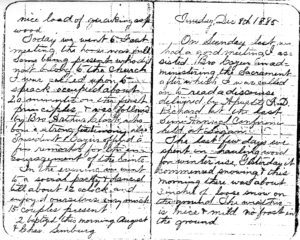 nice load of quaking asp
wood
Today we went to Fast
meeting the house was full
some being present who do
not belong to the Church
I was called upon to
speak occupied about
20 minutes on the first
principles & was followed
by Bro
bore a strong testimony also
President
few remarks for the en-
couragement of the Saints
In the evening we went
to a social party & danced
till about 12 o'clock and
enjoyed ourselves very much
15 couples present
Baptized this morning August
& Chas
Tuesday Dec 8th 1885
On Sunday last we
had a good meeting I as-
sisted Bro in ad-
ministering the Sacrament
after which I was called
on to read a discourse
delivered by Apostle F. D.
Richards at the last
general Conference
held at Logan
The last few days we
spent in hauling wood
for winter use Saturday it
commenced snowing & this
morning there was about
1 inch of loose snow on
the ground. The weather
is nice & mild no frost in
the ground